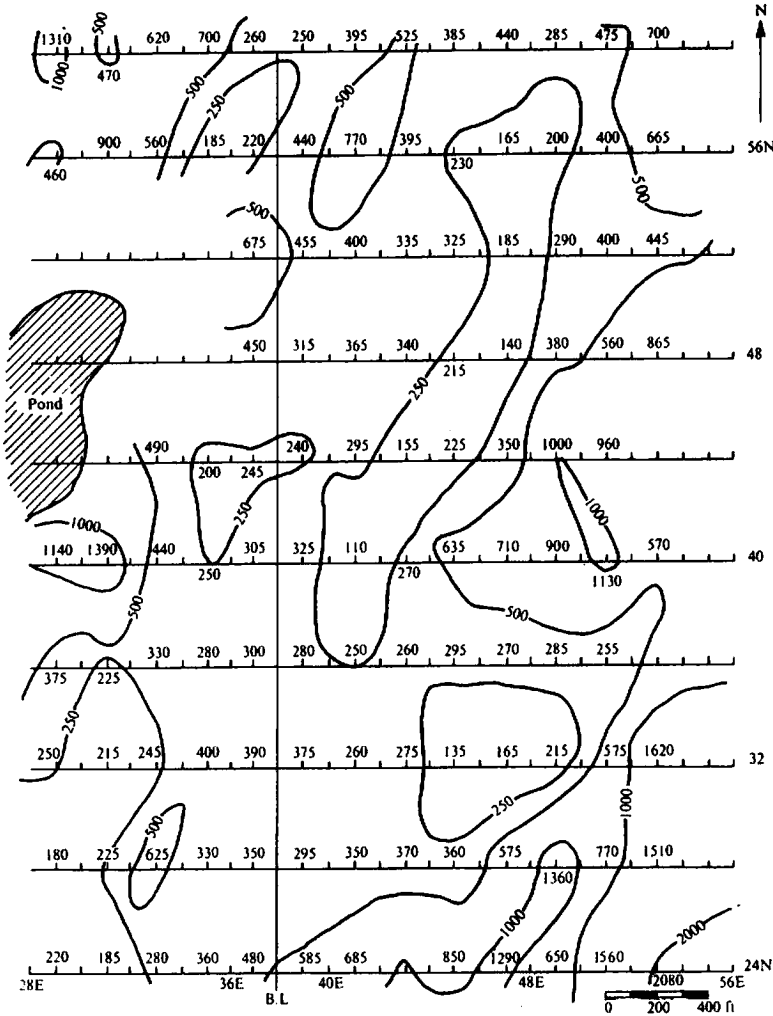 N
500
1310 620 700 260 250 395 525 385 440 285 475 700
1000 470
500
250 500
900 560 185 220 440 770 395 165 200 400 665
56N
460 230
500
500
675 455 400 335 325 185 290 400 445
450 315 365 340 140 380 560 865
48
215
250
Pond
490 240 295 155 225 350 1000 960
200 245
250 1000
1000
1140 1390 440 305 325 110 635 710 900 570
40
250 270 1130
500 500
330 280 300 280 250 260 295 270 285 255
375 225
250
250 215 245 400 390 375 260 275 135 165 215 575 1620
32
250 1000
500
180 225 625 330 350 295 350 370 360 575 770 1510
1360
1000 2000
220 185 280 360 480 585 685 850 1290 650 1560
24N
28E 36E 40E 48E 2080 56E
B.L
0 200 400 ft